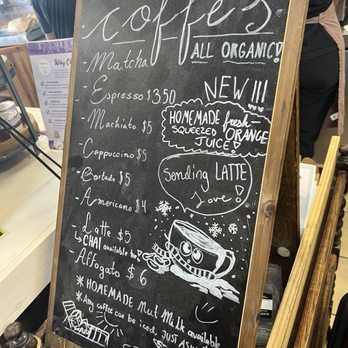 coffe's
ALL ORGANIC!
- Matcha
- Espresso $3.50
- Machiato $5
- Cappuccino $5
- Cortado $5
- Americano $4
- Latte $5
↳ CHAI available too
- Affogato $6
* HOMEMADE Nut Milk available
* Any coffee can be iced, JUST ASK
NEW!!!
HOMEMADE fresh-
SQUEEZED ORANGE
JUICE!
Sending LATTE
Love!